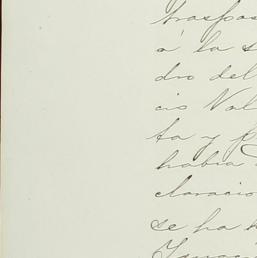 traspas
á la s
dro del
cio Val
ta y p
habia
claracio
se ha h